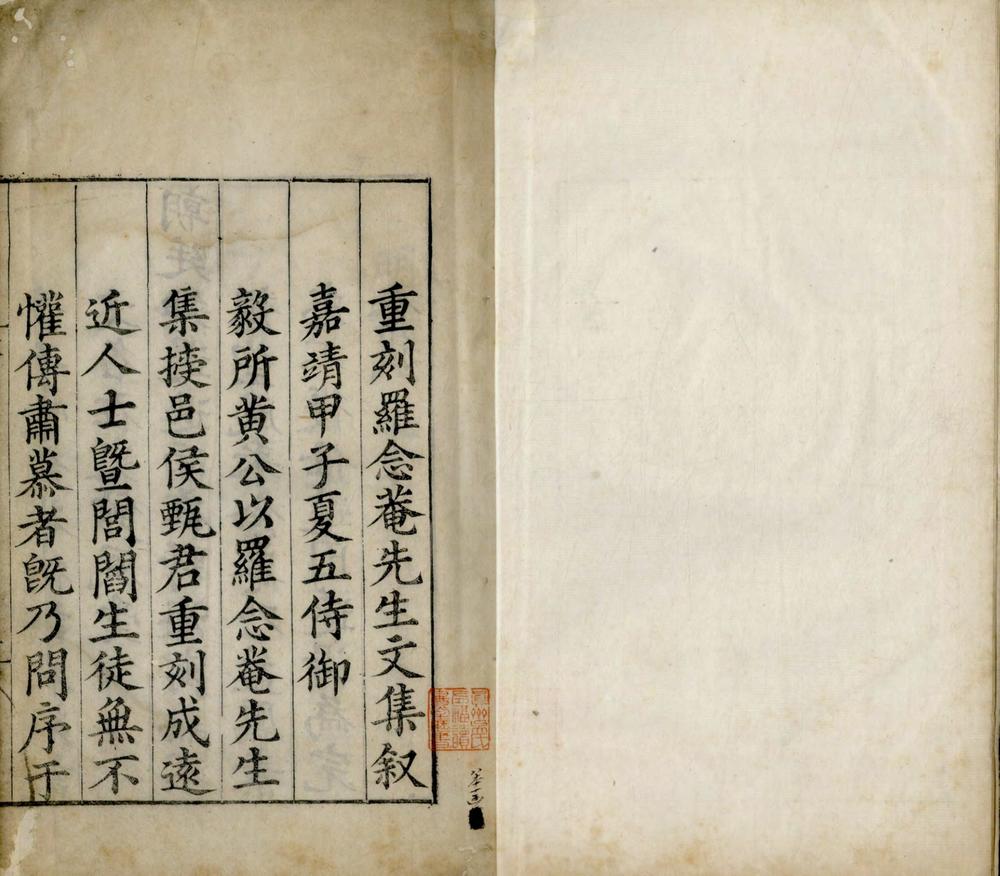 重刻羅念菴先生文集叙
嘉靖甲子夏五侍御
毅所黄公以羅念菴先生
集授邑侯甄君重刻成遠
近人士暨閭閻生徒無不
懽傳肅慕者旣乃問序于